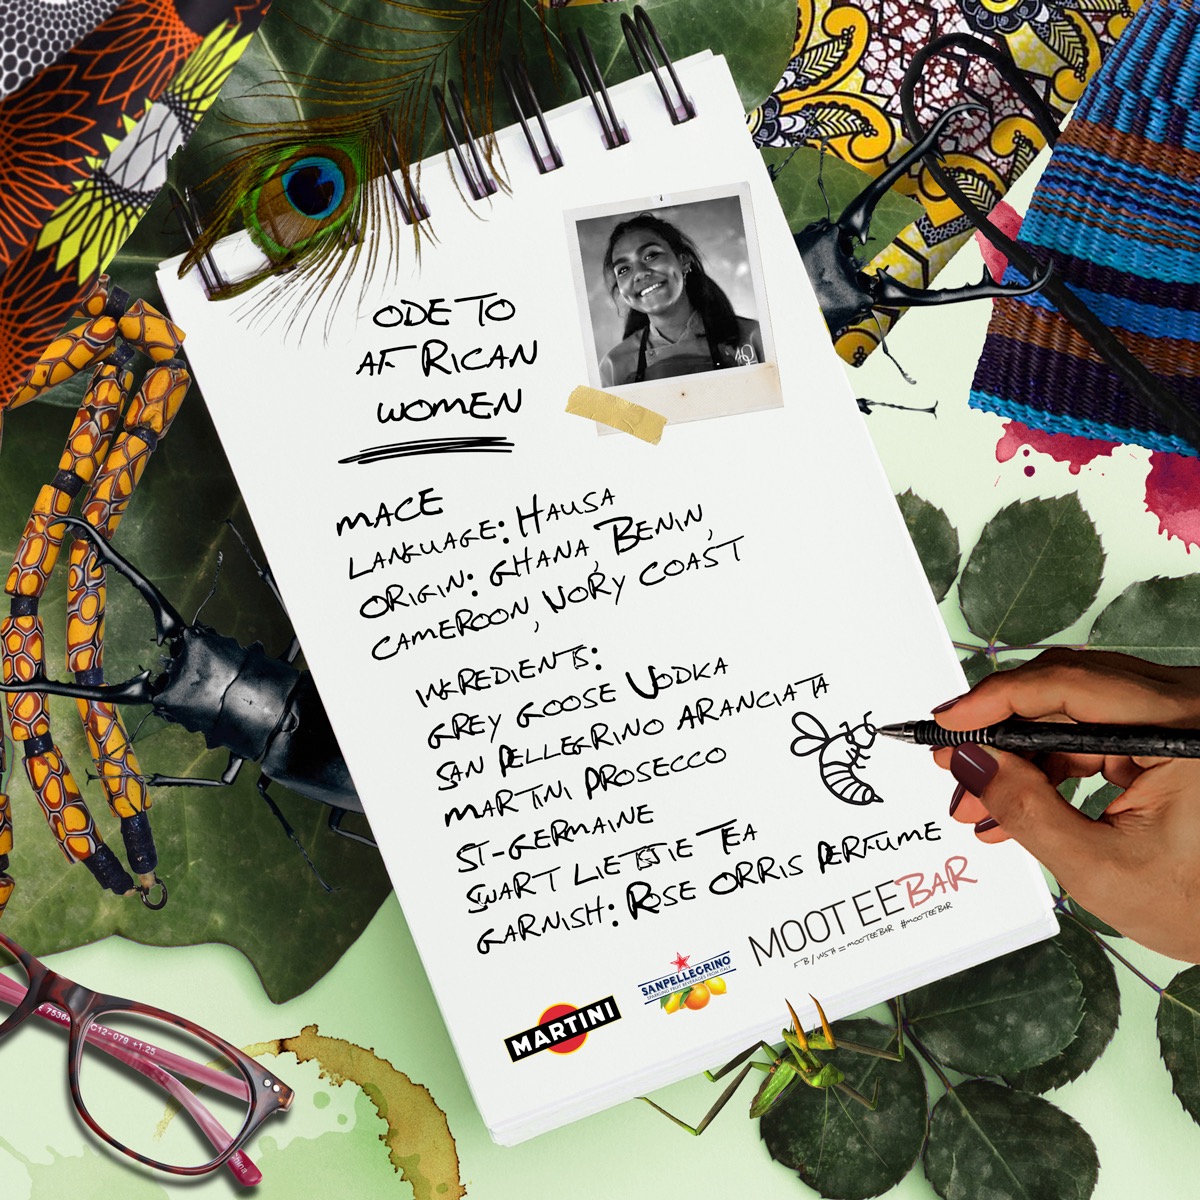 ODE TO
AFRICAN
WOMEN
MACE
LANGUAGE: HAUSA
ORIGIN: GHANA, BENIN,
CAMEROON, IVORY COAST
INGREDIENTS:
GREY GOOSE VODKA
SAN PELLEGRINO ARANCIATA
MARTINI PROSECCO
ST-GERMAINE
SWART LIETSTJIE TEA
GARNISH: ROSE ORRIS PERFUME
MOOTEEBAR
FB/INSTA = MOOTEEBAR #MOOTEEBAR
SANPELLEGRINO
SPARKLING FRUIT BEVERAGES FROM ITALY
MARTINI
C12-079 +1.25
China